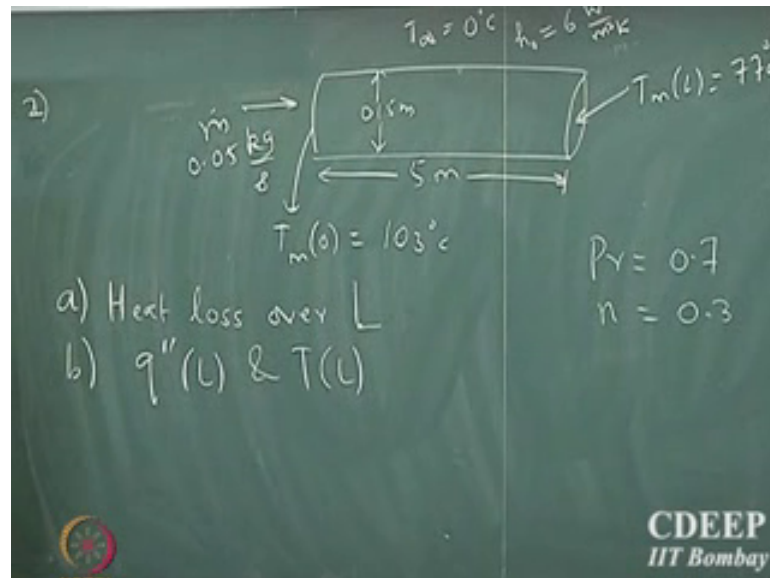 T∞ = 0°C h₀ = 6 W/m²K
2)
ṁ
0.05 kg/s
0.15m
Tm(L) = 77°
5 m
Tm(0) = 103°C
Pr = 0.7
n = 0.3
a) Heat loss over L
b) q"(L) & T(L)
CDEEP
IIT Bombay